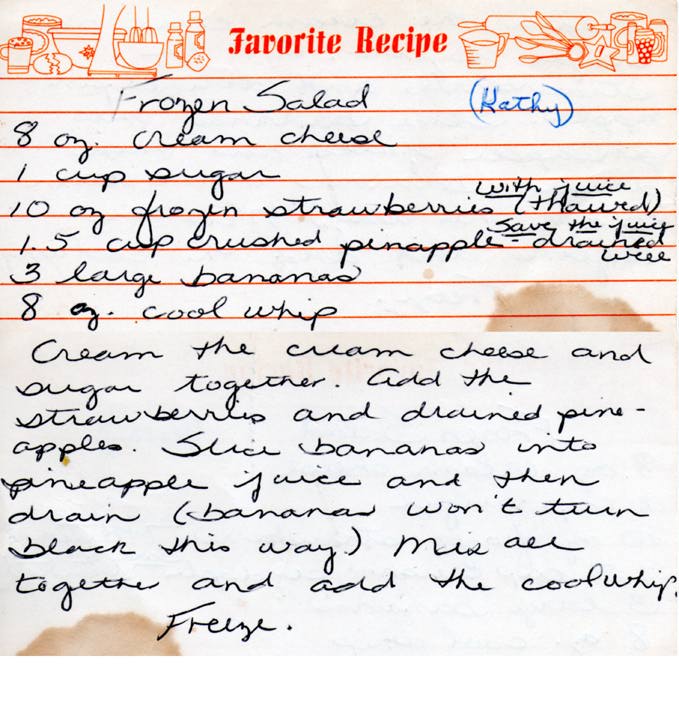 Favorite Recipe
Frozen Salad (Kathy)
8 oz. cream cheese
1 cup sugar
with juice
10 oz frozen strawberries (thawed)
Save the juice
1.5 cup crushed pineapple - drained
well
3 large bananas
8 oz. cool whip
Cream the cream cheese and
sugar together. Add the
strawberries and drained pine-
apples. Slice bananas into
pineapple juice and then
drain (bananas won't turn
black this way.) Mix all
together and add the coolwhip.
Freeze.